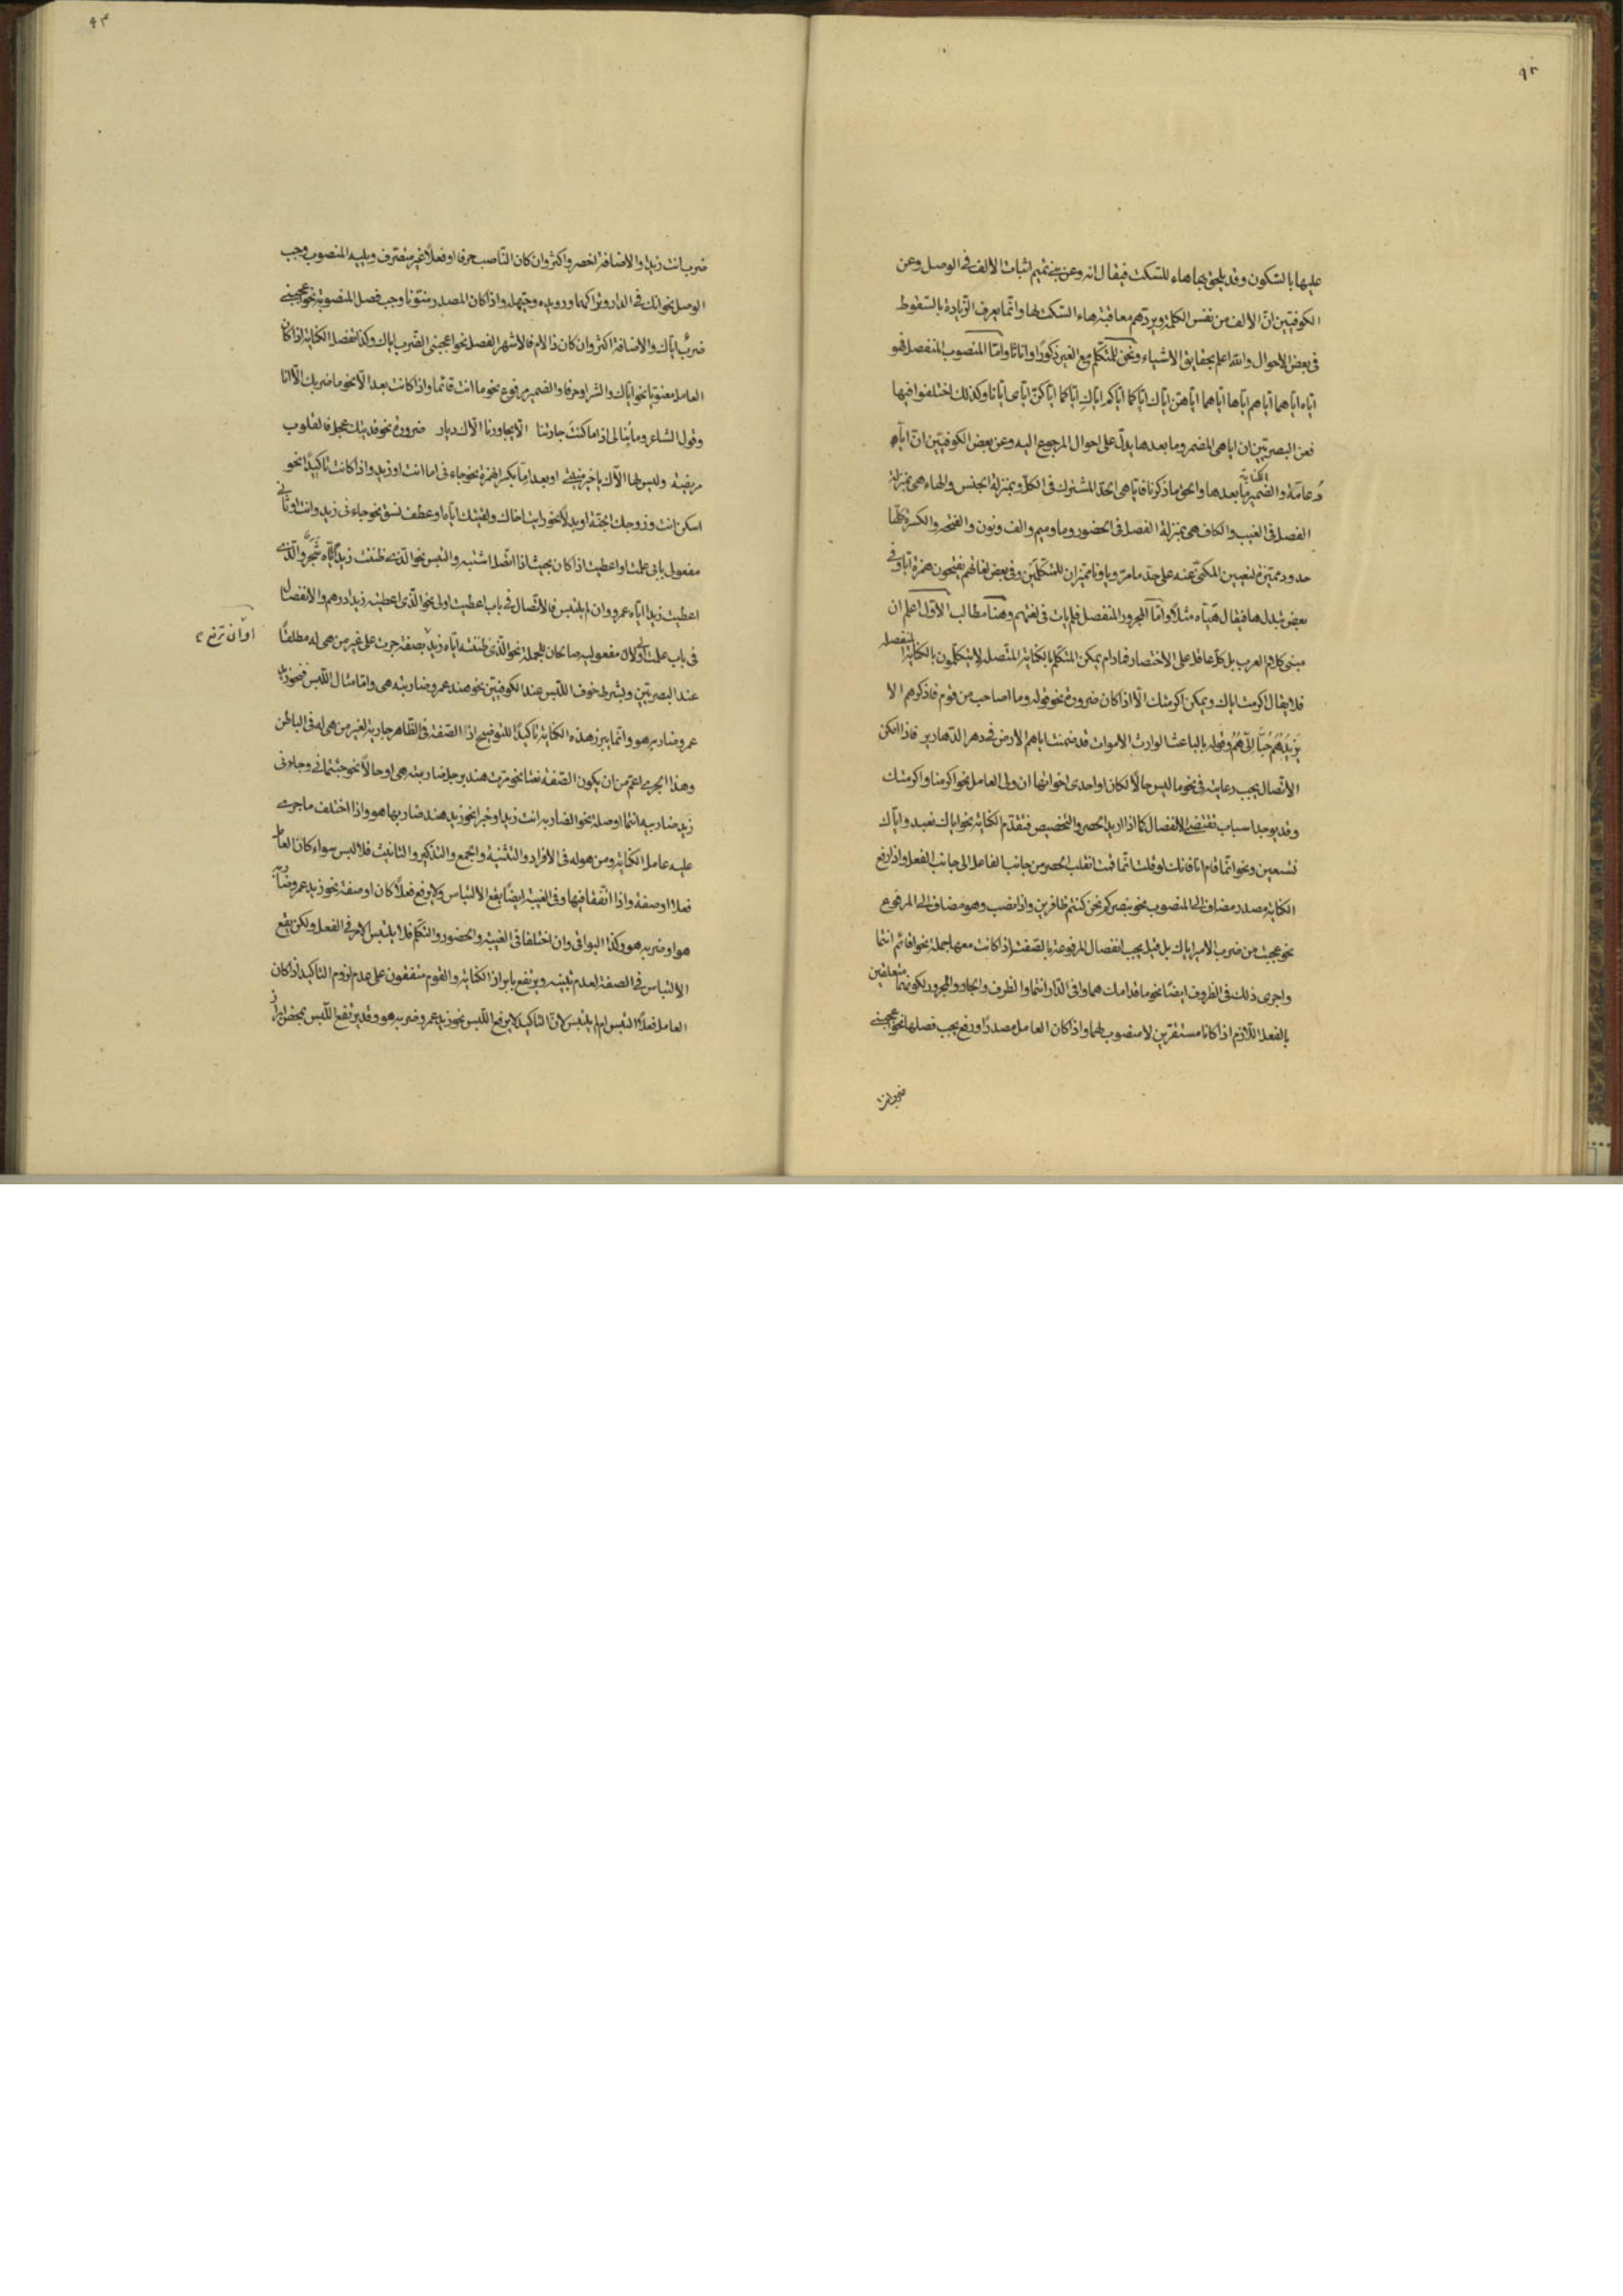 ٩٣
عليها بالسكون وقد يلحق بها هاء للسكت فيقال انه وعن بني تميم اثبات الالف في الوصل وعن
الكوفيين انّ الالف من نفس الكلمة ويردّهم معاقبة هاء السكت لها وانّما يعرف الزيادة بالسقوط
في بعض الاحوال والله اعلم بحقايق الاشياء ونحن للمتكلّم مع الغير ذكورًا واناثًا وامّا المنصوب المنفصل فهو
ايّاه ايّاهما ايّاهم ايّاها ايّاهما ايّاهنّ ايّاك ايّاكما ايّاكم ايّاكِ ايّاكما ايّاكنّ ايّاى ايّانا وكذلك اختلفوا فيها
فعن البصريّين ان ايا هي المضمر وما بعدها يدلّ على احوال المرجوع اليه وعن بعض الكوفيّين انّ ايّا
دعامة والضمير ما بعدها والحق ما ذكرنا فايّا هي الحدّ المشترك في الكلّ وبمنزلة الجنس والهاء هي بمنزلة
الكناية
الفصل في الغيب والكاف هي بمنزلة الفصل في الحضور وما وميم والف ونون والفتحة والكسرة كلّها
حدود مميّزة لتعيين المكنّى عنه على حدّ ما مرّ ويا ونا مميّزان للمتكلّمين وفي بعض لغاتهم يفتحون همزة ايّا وفي
بعض تبدل هاء فيقال هيّاه مثلًا وامّا المجرور المنفصل فلم يات في لغتهم وهنا مطالب الاوّل اعلم ان
مبنى كلام العرب بل كلّ عاقل على الاختصار فما دام يمكن التكلّم بالكناية المتّصلة لا يتكلّمون بالكناية المنفصلة
فلا يقال اكرمت اياك ويمكن اكرمتك الّا اذا كان ضرورة نحو قوله وما اصاحب من قوم فاذكرهم الا
يَزيدُهُم حُبًّا اِلَيَّ هُمُ وقوله بالباعث الوارث الاموات قد ضمنت اياهم الارض في دهر الدهارير فاذا امكن
الاتصال يجب رعايته في نحو ما ليس حالًا لكان او احدى اخواتها ان ولى العامل نحو اكرمنا واكرمتك
وقد يوجد اسباب تقتضي الانفصال كما اذا اريد الحصر والتخصيص فتقدّم الكناية نحو اياك نعبد واياك
نستعين ونحو انّما قام انا فانك لو قلت انّما قمت انقلب الحصر من جانب الفاعل الى جانب الفعل واذا رفع
الكناية مصدر مضاف الى المنصوب نحو بنصركم نحن كنتم ظافرين واذا نصب وهو مضاف الى المرفوع
نحو عجبت من ضرب الامير اياك بل قيل يجب انفصال المرفوعة بالصفة اذا كانت معها جملة نحو اقائم انتما
واجرى ذلك في الظروف ايضًا نحو ما قدامك هما وافي الدّار انتما والظرف والجار والمجرور لكونهما متعلقين
بالفعل اللّازم اذا كانا مستقرين لا منصوب لهما واذا كان العامل مصدرًا ورفع يجب فصلها نحو عجبني
ضربانت
٩٤
ضرب انت زيدا والاضافة اخصر واكثر وان كان النّاصب حرفا او فعلًا غير متصرف ويليه المنصوب وجب
الوصل نحو انك في الدار وتراكها ورويده وحيّهله واذا كان المصدر منوّنا وجب فصل المنصوبة نحو عجبني
ضربٌ ايّاك والاضافة اكثر وان كان ذا لام فالاشهر الفصل نحو اعجبني الضرب اياك وكذا تفصل الكناية اذا كان
العامل معنويّا نحو ايّاك والشر او حرفا والضمير مرفوع نحو ما انت قائما واذا كانت بعد الّا نحو ما ضربك الّا انا
وقول الشاعر وما نُبالى اذا ما كنتَ جارتنا الّا يجاورنا الّاك ديار ضرورة نحو فديتك عجل فالقلوب
مريضة وليس لها الّاك يا خير منتهى او بعد امّا بكسر الهمزة نحو جاءنى اما انت او زيد واذا كانت تاكيدًا نحو
اسكن انت وزوجك الجنّة او بدلًا نحو رايت اخاك ولقيتك ايّاه او عطف نسق نحو جاءنى زيد وانت او ثانى
مفعولى باب علمت او اعطيت اذا كان بحيث اذا اتّصل اشتبه والتبس نحو الّذى ظننت زيدًا ايّاه شجر والّذى
اعطيت زيدًا ايّاه عمرو وان لم يلتبس فالاتّصال في باب اعطيت اولى نحو الّذى اعطيته زيدا درهم والانفصال
في باب علمت اولى لان مفعوليه صاحبان للجملة نحو الّذى ظننته ايّاه زيدٌ بصفة جرت على غير من هى له مطلقًا
او ان ترفع
عند البصريّين وبشرط خوف اللّبس عند الكوفيّين نحو هند عمرو ضاربته هى وامّا مثال اللّبس فنحو زيد
عمرو ضاربه هو وانّما يبرز هذه الكناية تاكيدًا للتوضيح اذ الصّفة في الظاهر جارية لغير من هى له في الباطن
وهذا الجرى اعمّ من ان يكون الصّفة نعتا نحو مررت هند برجل ضاربته هى او حالًا نحو جئتمانى وجاءنى
زيد ضاربيه انتما او صلة نحو الضاربه انت زيد او خبرا نحو زيد هند ضاربها هو واذا اختلف ما جرى
عليه عامل الكناية ومن هو له في الافراد والتثنية والجمع والتذكير والتانيث فلا لبس سواء كان العامل
فعلا او صفة واذا اتّفقا فيها وفي الغيبة ايضًا يقع الالتباس ولا يرفع فعلًا كان او صفة نحو زيد عمرو ضاربه
هو او ضربه هو وكذا البواقى وان اختلفا في الغيبة والحضور والتكلّم فلا يلتبس الامر في الفعل ولكن يقع
الالتباس في الصفة لعدم تبيينه ويرتفع بابراز الكناية والقوم متفقون على عدم لزوم التاكيد اذا كان
العامل فعلًا التبس ام لم يلتبس لانّ التاكيد لا يرفع اللّبس نحو زيد عمرو ضربه هو وقد يرتفع اللّبس بمحض ابراز